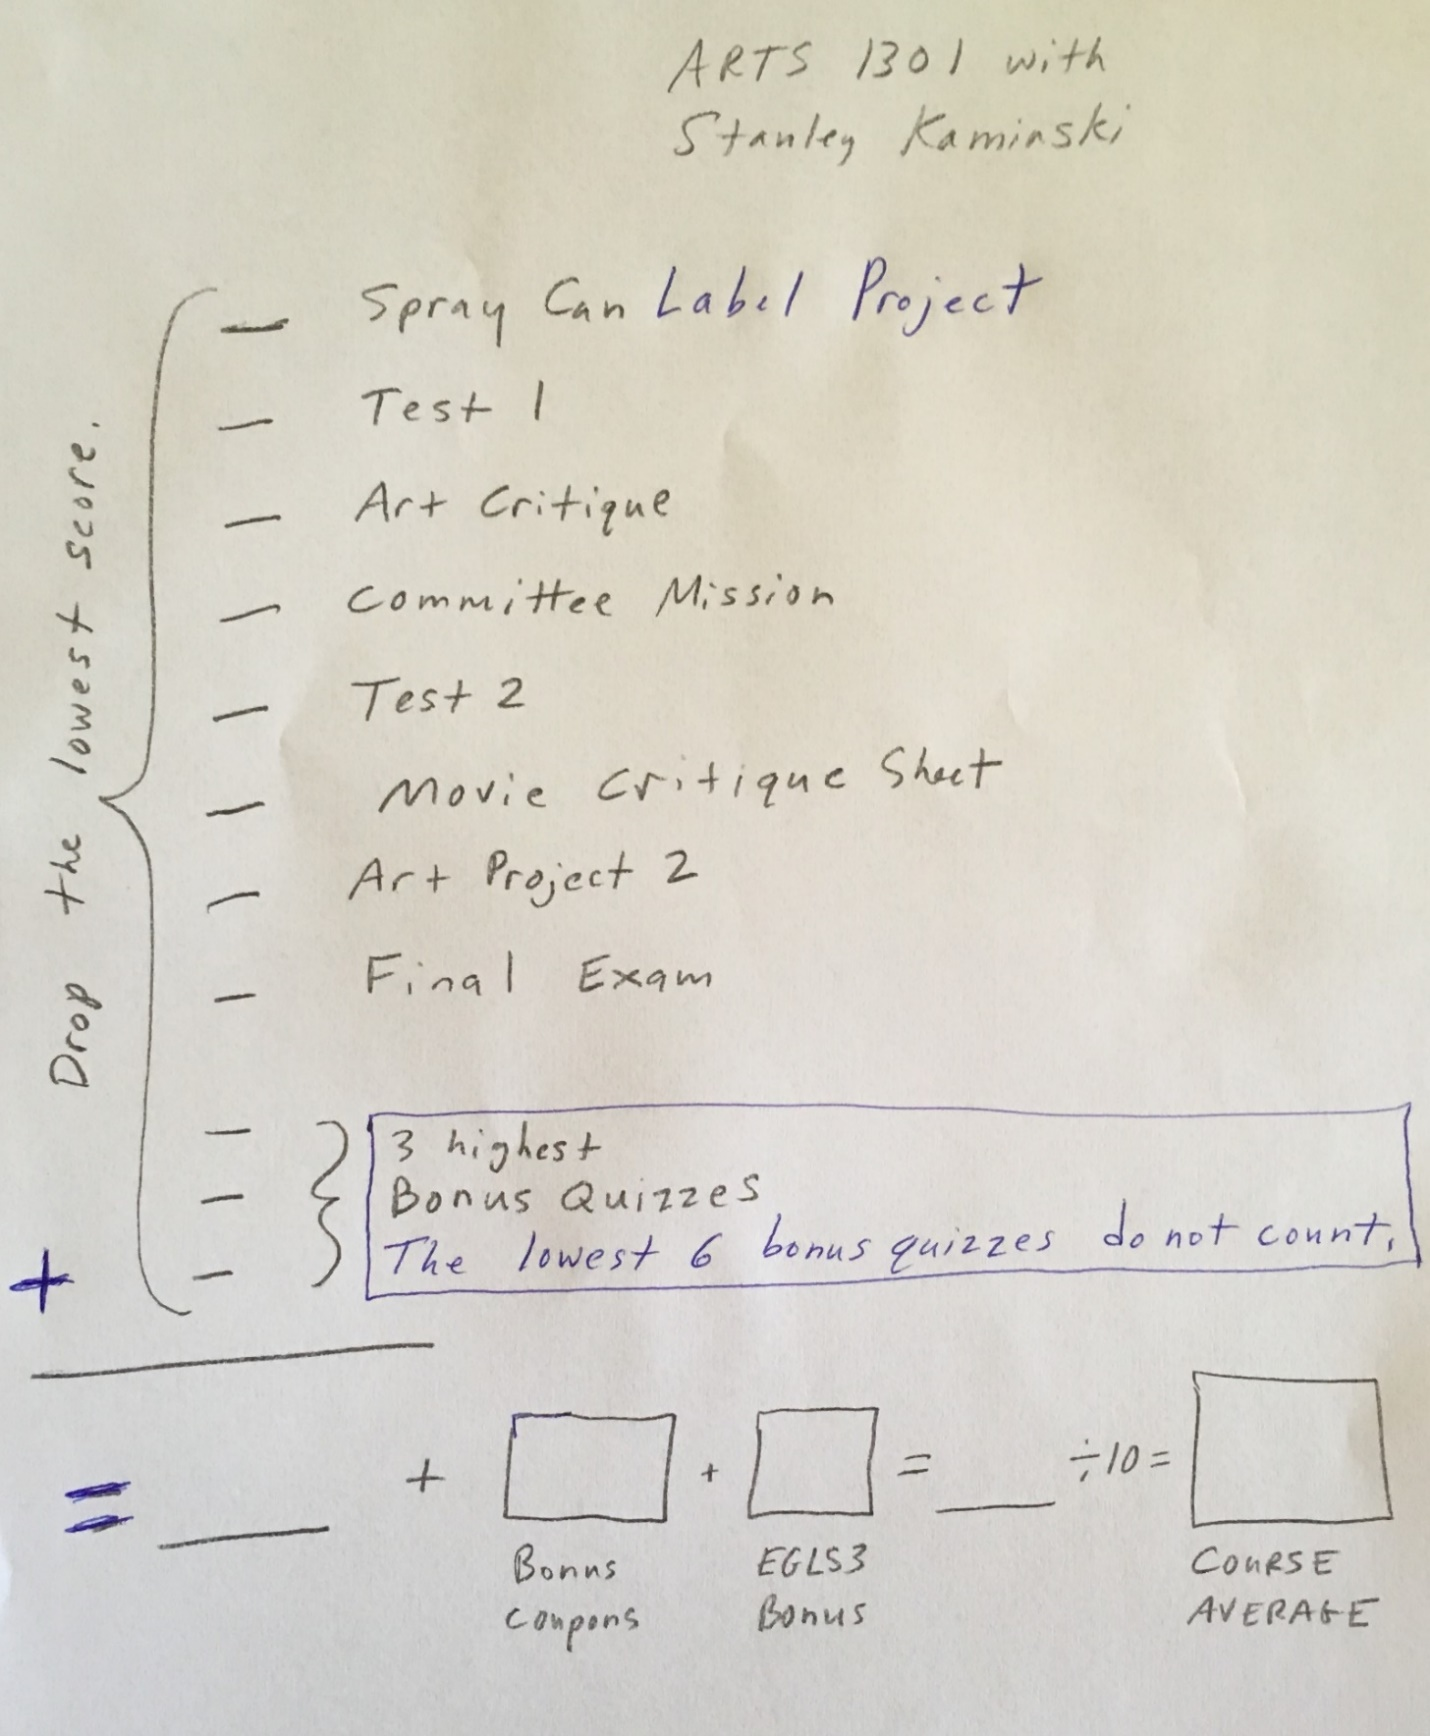 ARTS 1301 with
Stanley Kaminski
Drop the lowest score.
— Spray Can Label Project
— Test 1
— Art Critique
— Committee Mission
— Test 2
— Movie Critique Sheet
— Art Project 2
— Final Exam
— 3 highest
— Bonus Quizzes
— The lowest 6 bonus quizzes do not count.
+
= ___ + + = ___ ÷10 =
Bonus EGLS3 COURSE
Coupons Bonus AVERAGE